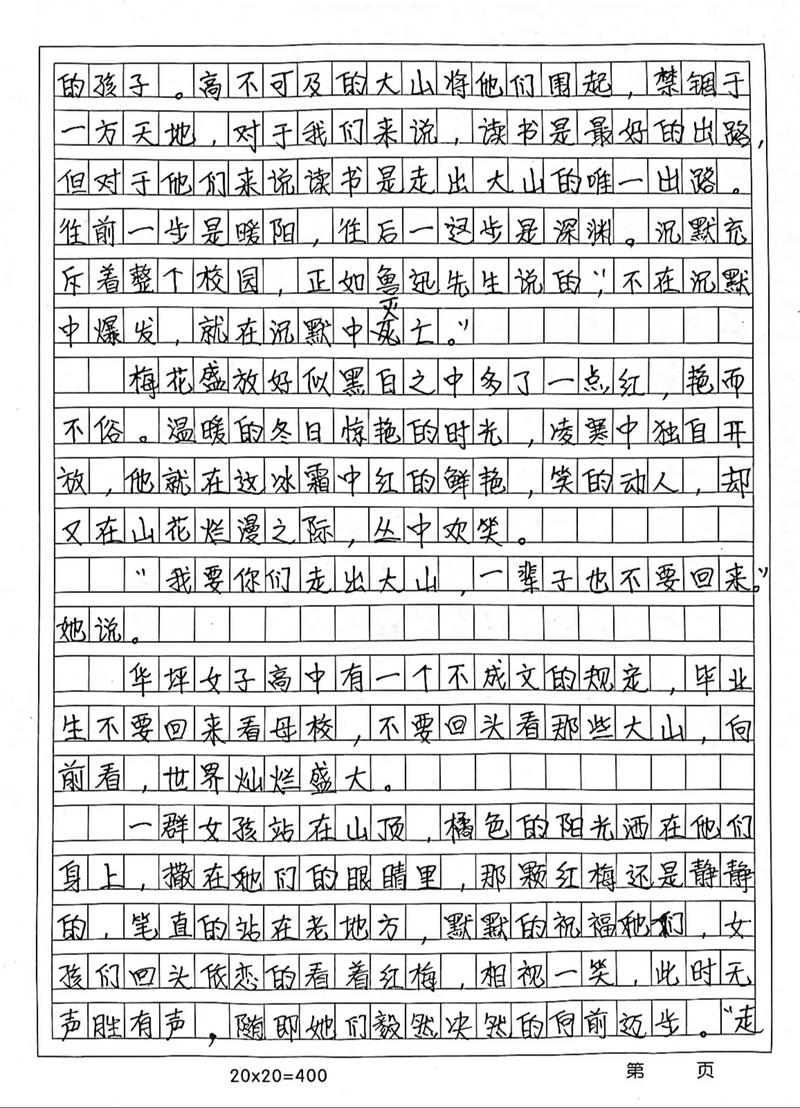 的孩子。高不可及的大山将他们围起，禁锢于
一方天地，对于我们来说，读书是最好的出路，
但对于他们来说读书是走出大山的唯一出路。
往前一步是暖阳，往后一这步是深渊。沉默充
斥着整个校园，正如鲁迅先生说的“，不在沉默
中爆发，就在沉默中灭亡。”
梅花盛放好似黑白之中多了一点红，艳而
不俗。温暖的冬日惊艳的时光，凌寒中独自开
放，他就在这冰霜中红的鲜艳，笑的动人，却
又在山花烂漫之际，丛中欢笑。
“我要你们走出大山，一辈子也不要回来。”
她说。
华坪女子高中有一个不成文的规定，毕业
生不要回来看母校，不要回头看那些大山，向
前看，世界灿烂盛大。
一群女孩站在山顶，橘色的阳光洒在他们
身上，撒在她们的眼睛里，那颗红梅还是静静
的，笔直的站在老地方，默默的祝福她们，女
孩们回头依恋的看着红梅，相视一笑，此时无
声胜有声，随即她们毅然决然的向前迈步。“走
20x20=400
第 页